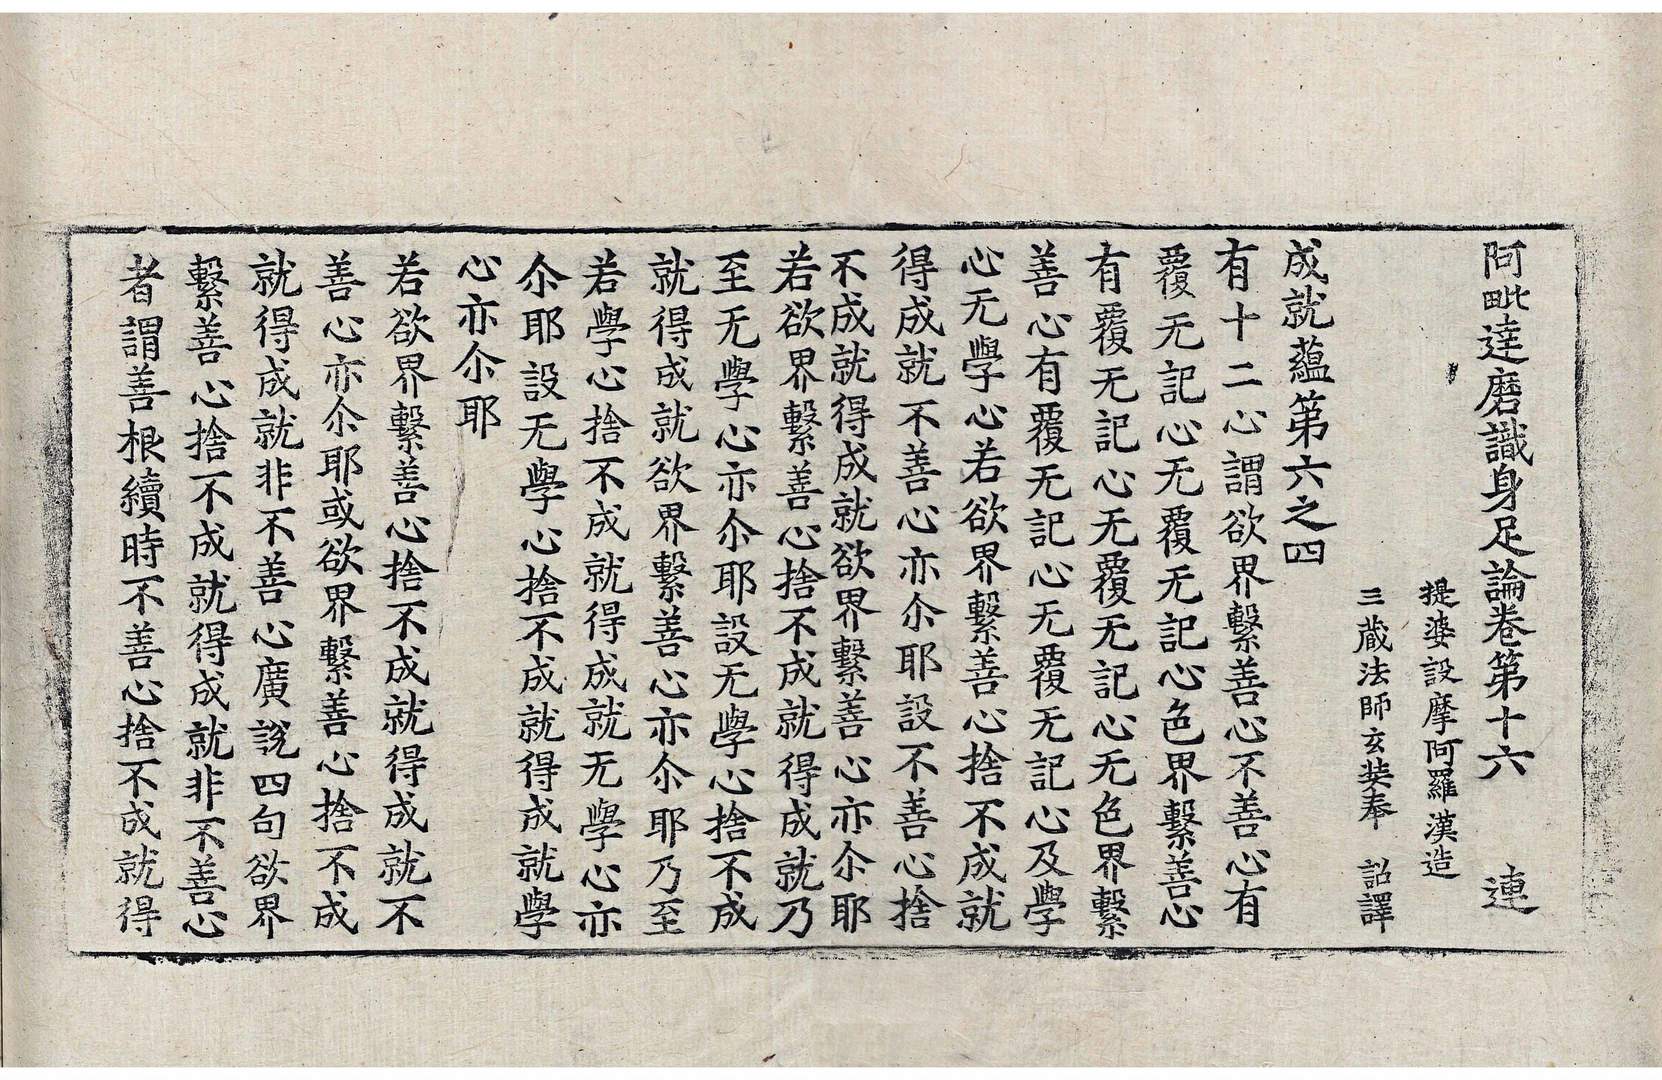 阿毗達磨識身足論卷第十六 連
提婆設摩阿羅漢造
三藏法師玄奘奉 詔譯
成就蘊第六之四
有十二心謂欲界繫善心不善心有
覆无記心无覆无記心色界繫善心
有覆无記心无覆无記心无色界繫
善心有覆无記心无覆无記心及學
心无學心若欲界繫善心捨不成就
得成就不善心亦尒耶設不善心捨
不成就得成就欲界繫善心亦尒耶
若欲界繫善心捨不成就得成就乃
至无學心亦尒耶設无學心捨不成
就得成就欲界繫善心亦尒耶乃至
若學心捨不成就得成就无學心亦
尒耶設无學心捨不成就得成就學
心亦尒耶
若欲界繫善心捨不成就得成就不
善心亦尒耶或欲界繫善心捨不成
就得成就非不善心廣說四句欲界
繫善心捨不成就得成就非不善心
者謂善根續時不善心捨不成就得